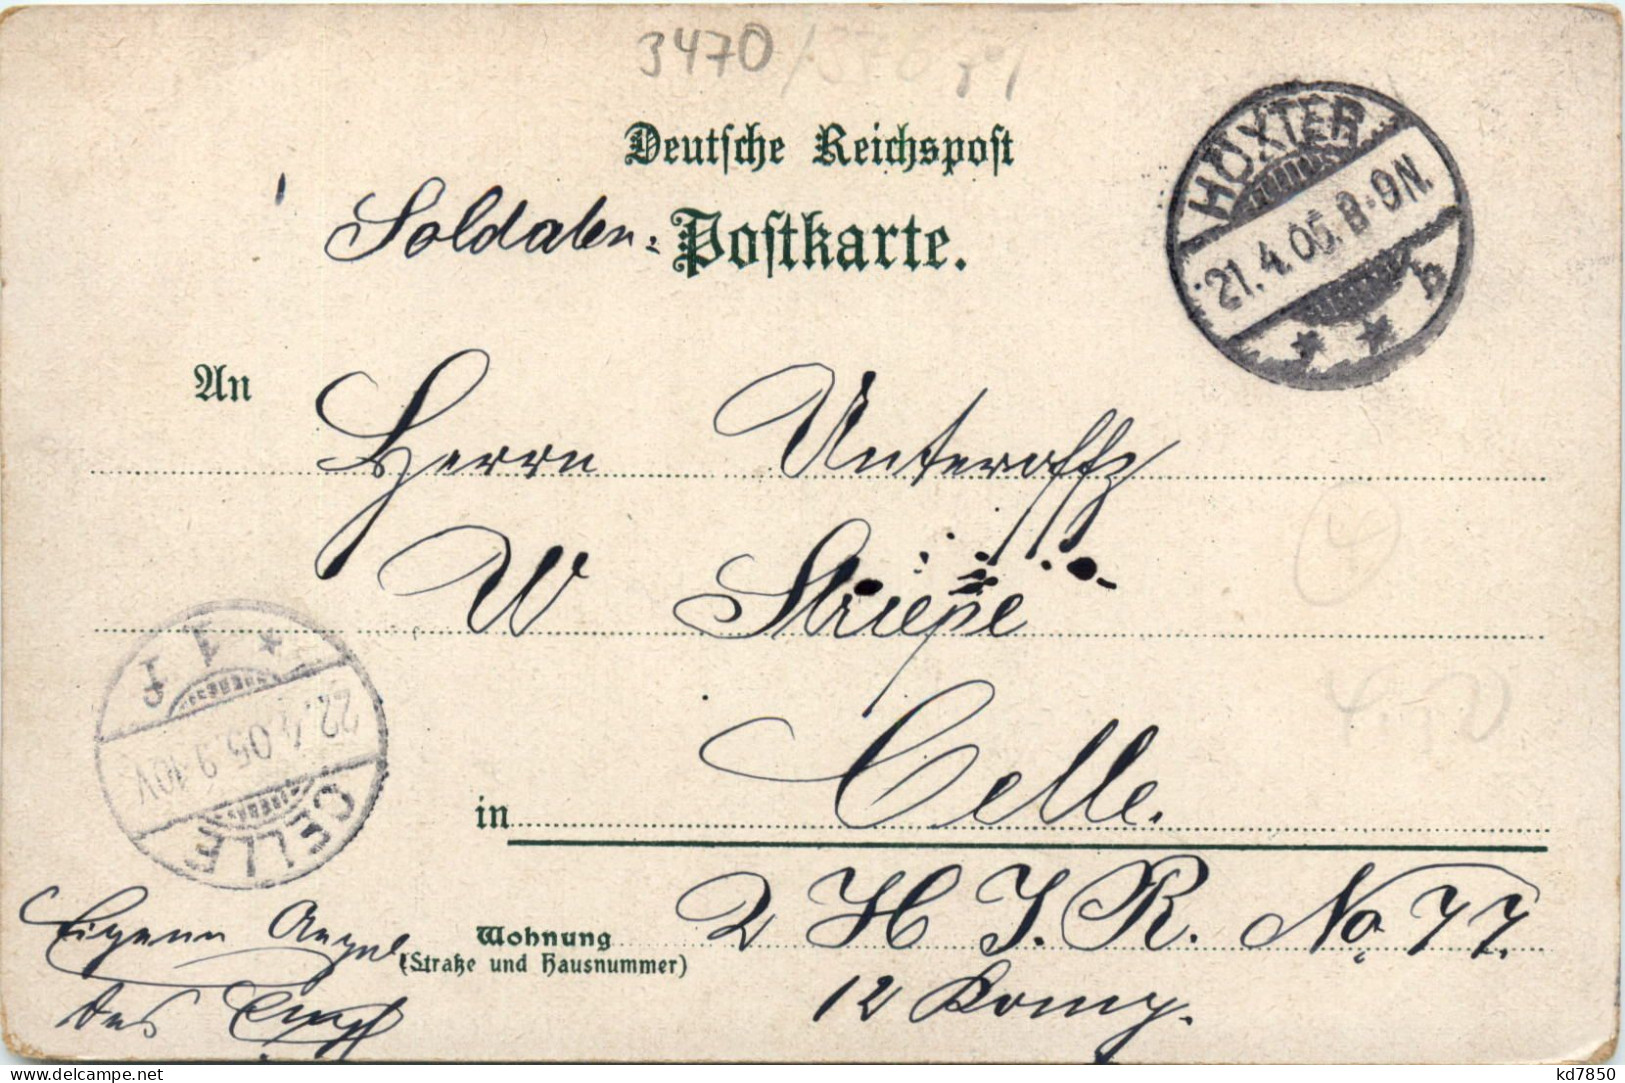 3470
Deutsche Reichspost
Soldaten- Postkarte.
HÖXTER
21.4.05.8-9N.
b
An
Herrn Unteroffz
W Striepe
CELLE
22.4.05.9-10V.
in Celle.
Wohnung 2 H J. R. No 77.
(Straße und Hausnummer)
12 Komp.
Eigene Angel.
des Empf
kd7850